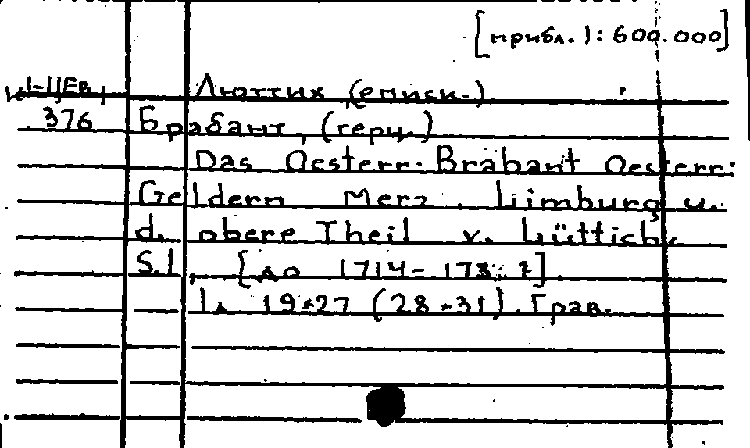 [прибл. 1:600.000]
Люттих (еписк.)
376 Брабант, (герц.)
Das Oesterr. Brabant Oesterr:
Geldern Merz. Limburg u.
d. obere Theil v. Lüttich.
S.l. [до 1714-178
1л 19×27 (28×31). Грав.